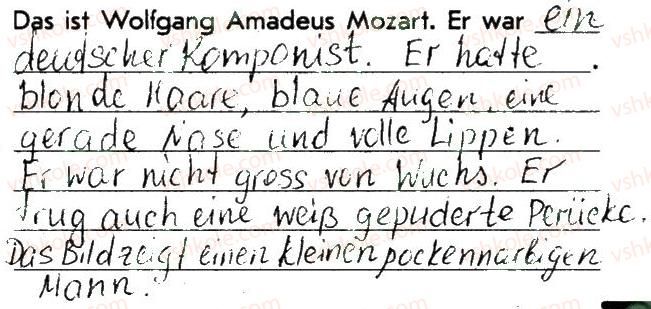 Das ist Wolfgang Amadeus Mozart. Er war ein
deutscher Komponist. Er hatte .
blonde Haare, blaue Augen, eine
gerade Nase und volle Lippen.
Er war nicht gross von Wuchs. Er
trug auch eine weiß gepuderte Perücke.
Das Bild zeigt einen kleinen pockennarbigen
Mann.